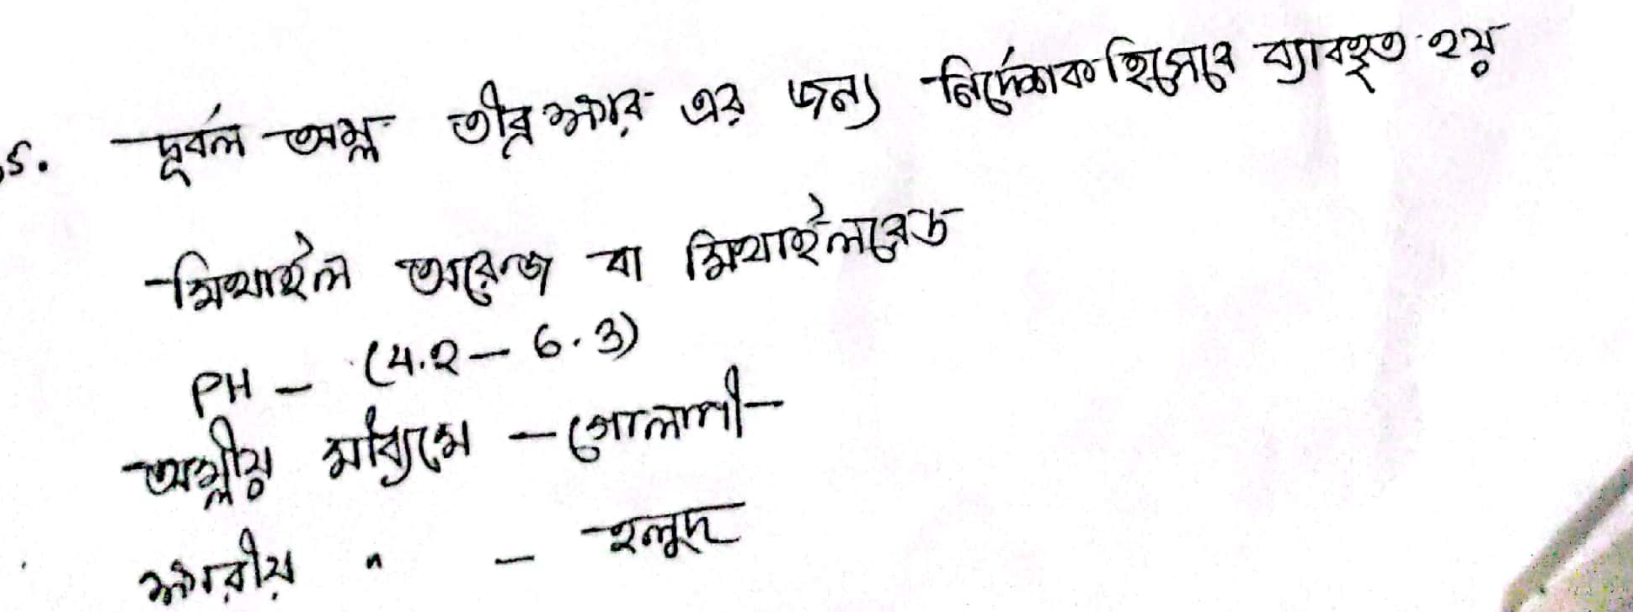 দূর্বল অম্ল তীব্র ক্ষার এর জন্য নির্দেশক হিসেবে ব্যাবহৃত হয়
মিথাইল অরেন্জ বা মিথাইলরেড
PH - (4.2 - 6.3)
অম্লীয় মাধ্যমে - গোলাপী
ক্ষারীয় " - হলুদ